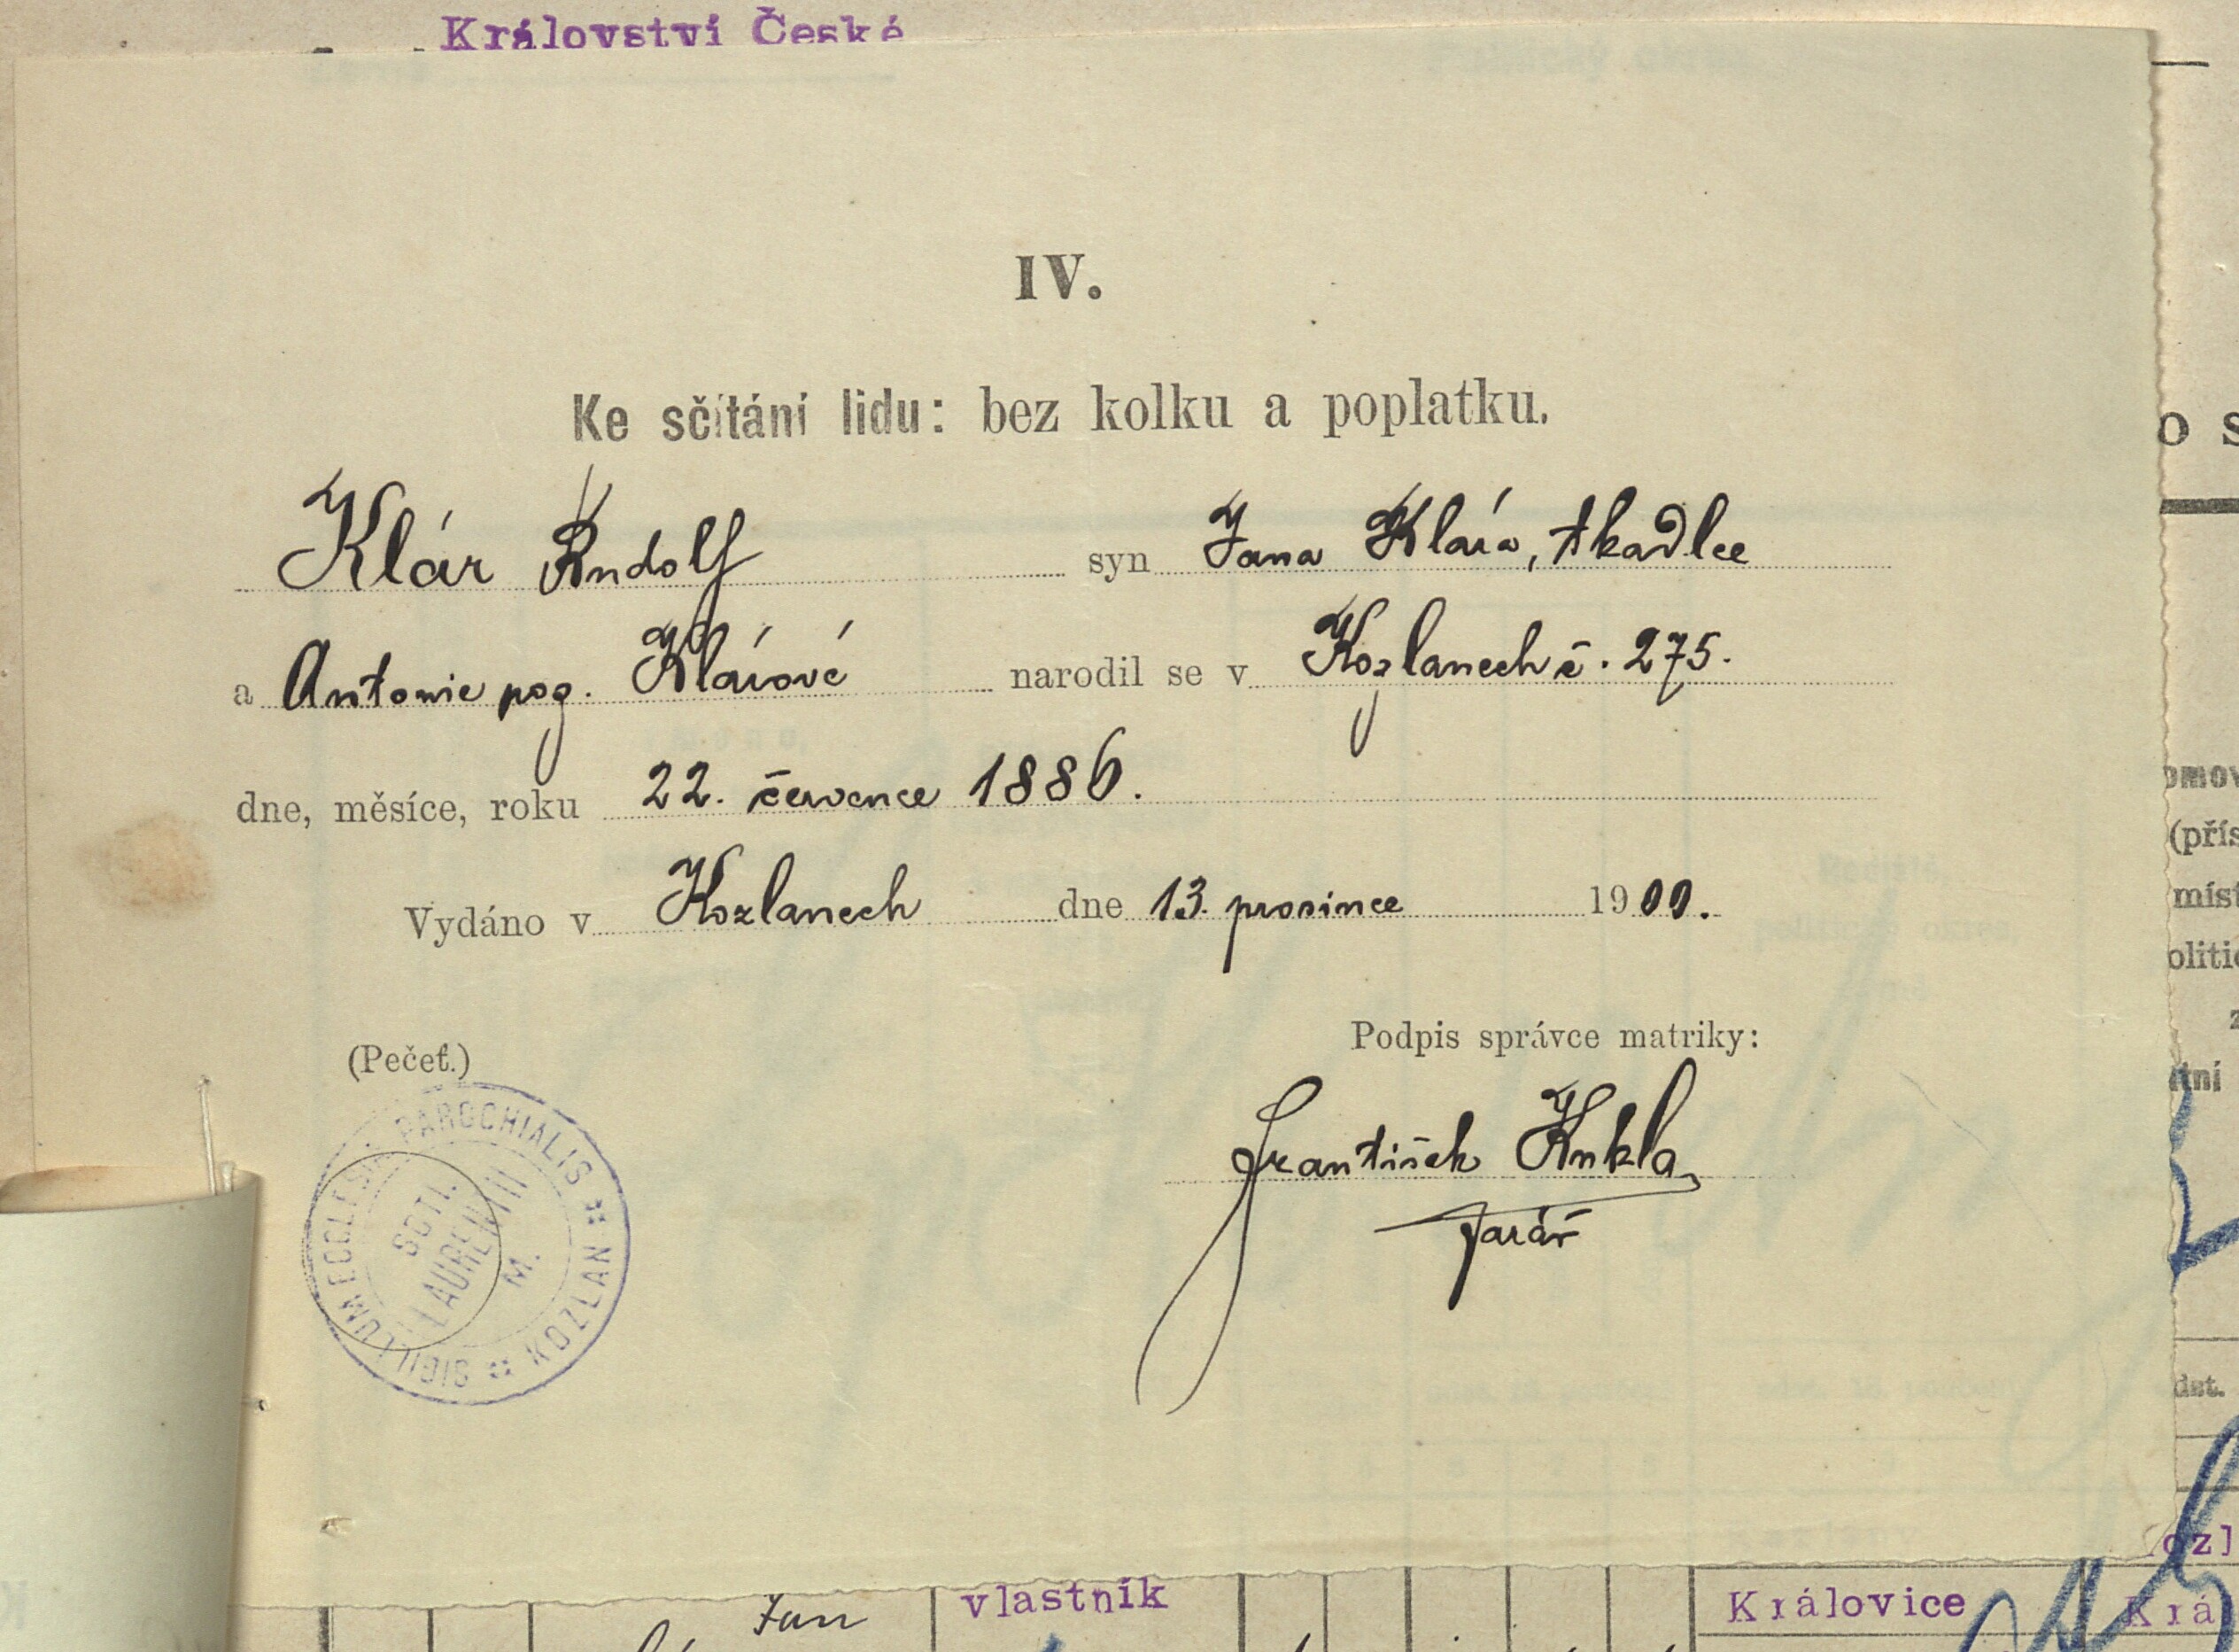 Království České
IV.
Ke sčítání lidu: bez kolku a poplatku.
Klár Rudolf syn Jana Klára, tkadlce
a Antonie poz. Klárové narodil se v Kozlanech č. 275.
dne, měsíce, roku 22. července 1886.
Vydáno v Kozlanech dne 13. prosince 1900.
(Pečeť.)
Podpis správce matriky:
František Kukla
farář
SIGILLUM ECCLESIÆ PAROCHIALIS
KOZLAN
SCTI.
LAURENTII
M.
o s
omov
(přís
míst
olitic
z
tní
dst.
ozl
Jan vlastník Královice Krá